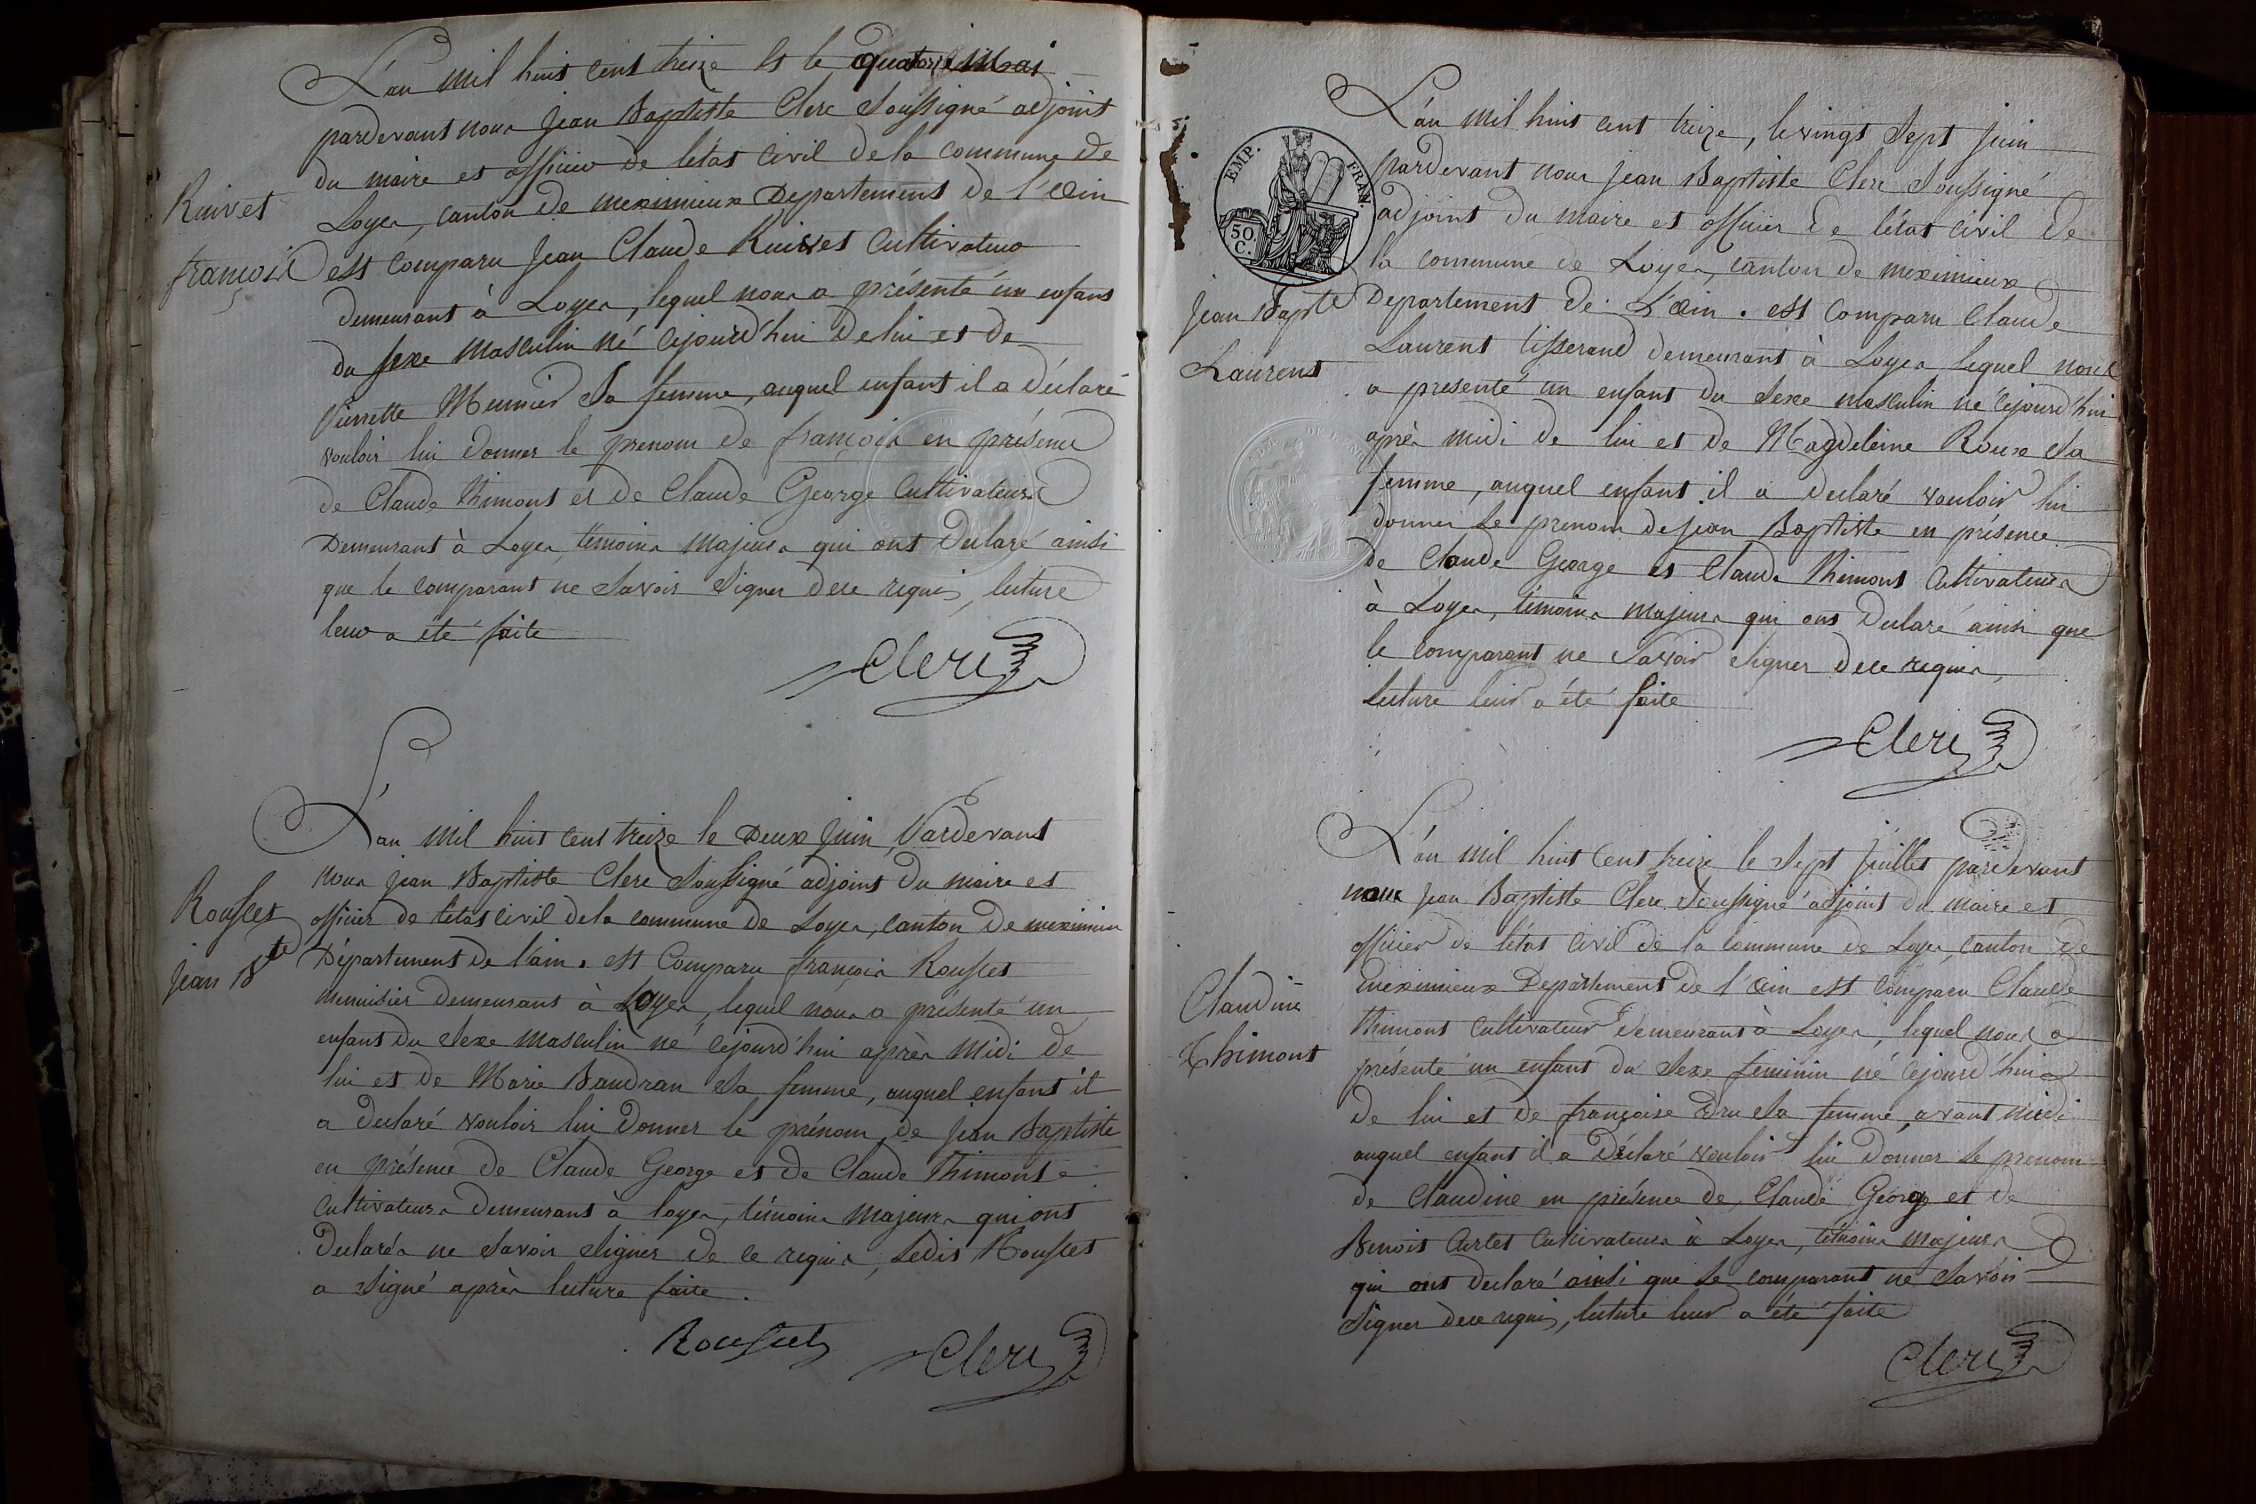 L'an mil huit cent treize et le quatorze Mai
pardevant nous Jean Baptiste Clerc Soussigné adjoint
du maire et officier de l'état civil de la commune de
Loyes, canton de meximieux Departement de l'ain
Ruivet
françois
est comparu Jean Claude Ruivet Cultivateur
demeurant à Loyes, lequel nous a présenté un enfant
du sexe masculin né cejourd'hui de lui et de
Pierrette Meunier Sa femme, auquel enfant il a déclaré
vouloir lui donner le prenom de françois en présence
de Claude Thimont et de Claude George Cultivateurs
Demeurant à Loyes, temoins majeurs qui ont Declaré ainsi
que le comparant ne Savoir Signer de ce requis, lecture
leur a été faite
Clerc
L'an mil huit cent treize le Deux Juin Pardevant
nous jean Baptiste Clerc Soussigné adjoint du maire et
Rousset
jean Bte
officier de l'état civil de la commune de Loyes, canton de meximieux
Département de l'ain. est Comparu françois Rousset
menuisier demeurant à Loyes, lequel nous a présenté un
enfant du Sexe masculin né cejourd'hui après midi de
lui et de Marie Baudran Sa femme, auquel enfant il
a declaré vouloir lui Donner le prénom de Jean Baptiste
en présence de Claude George et de Claude Thimont
Cultivateurs Demeurant à loyes, témoins majeurs qui ont
Declarés ne Savoir Signer de ce requis, Ledit Rousset
a Signé après lecture faite.
Rousset Clerc
EMP. FRAN.
50
C.
L'an mil huit cent treize, le vingt Sept Juin
pardevant nous Jean Baptiste Clerc Soussigné
adjoint du maire et officier de l'état civil de
la commune de Loyes, canton de meximieux
Jean Bapte
Laurent
Departement de L'ain. est Comparu Claude
Laurent tisserand demeurant à Loyes lequel nous
a presenté un enfant du Sexe masculin né cejourd'hui
après midi de lui et de Magdeleine Roux Sa
femme, auquel enfant il a declaré vouloir lui
donner Le prenom de jean Baptiste en présence
de Claude George et Claude Thimont Cultivateurs
à Loyes, témoins majeurs qui ont Declaré ainsi que
le comparant ne Savoir Signer de ce requis,
Lecture leur a été faite
Clerc
L'an mil huit Cent treize le Sept Juillet pardevant
nous Jean Baptiste Clerc Soussigné adjoint du maire et
officier de l'état civil de la commune de Loyes, canton de
Claudine
Thimont
meximieux Departement de l'ain est comparu Claude
thimont cultivateur demeurant à Loyes, lequel nous a
présenté un enfant du Sexe feminin né cejourd'hui
de lui et de françoise Dru Sa femme, avant midi
auquel enfant il a Déclaré vouloir lui Donner Le prenom
de Claudine en présence de Claude George et de
Benoit Curtet Cultivateurs à Loyes, témoins majeurs
qui ont declaré ainsi que Le comparant ne Savoir
Signer de ce requis, lecture leur a été faite
Clerc